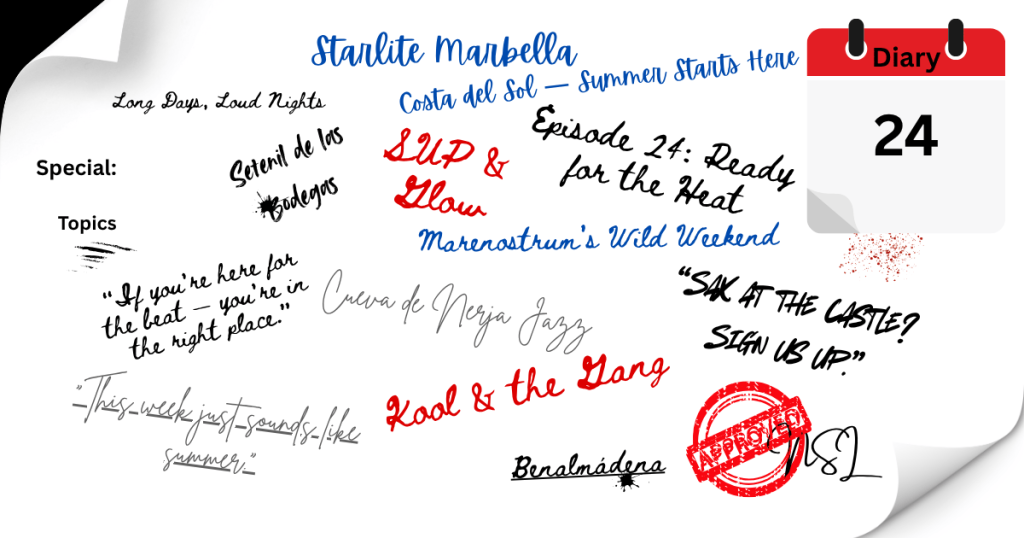 Starlite Marbella
Costa del Sol — Summer Starts Here
Diary
24
Long Days, Loud Nights
Special:
Setenil de las
Bodegas
SUP &
Glow
Episode 24: Ready
for the Heat
Topics
Marenostrum's Wild Weekend
"If you're here for
the beat — you're in
the right place."
Cueva de Nerja Jazz
"SAX AT THE CASTLE?
SIGN US UP."
"This week just sounds like
summer."
Kool & the Gang
Benalmádena
APPROVED
NSL